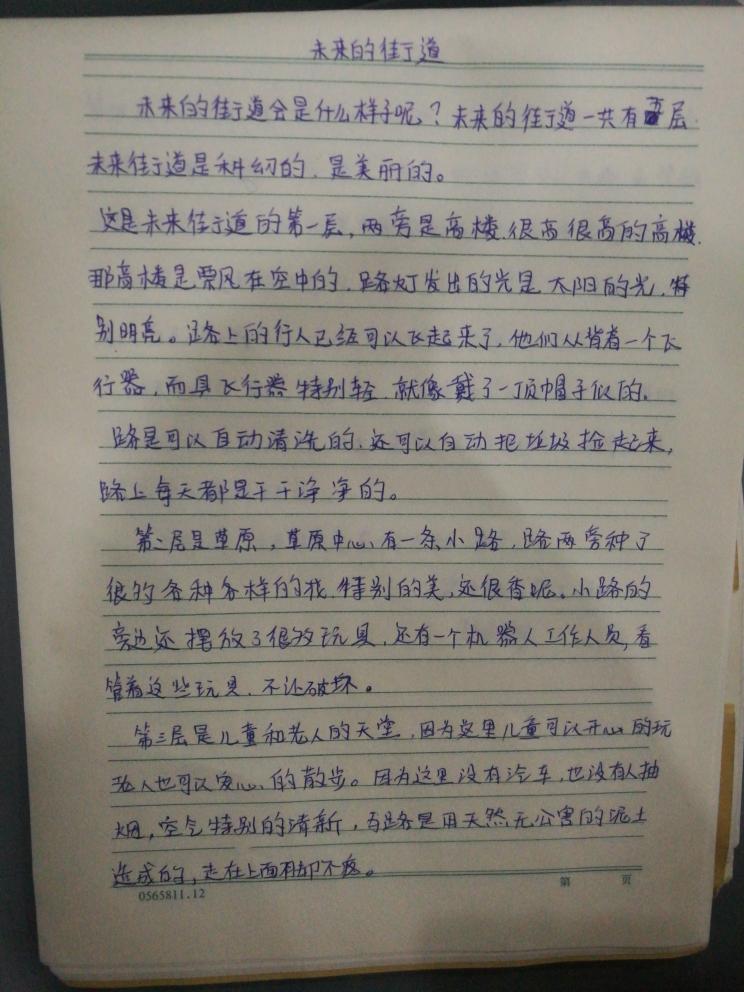 未来的街道
未来的街道会是什么样子呢？未来的街道一共有层.
未来街道是科幻的，是美丽的。
这是未来街道的第一层，两旁是高楼，很高很高的高楼，
那高楼是飘在空中的，路灯发出的光是太阳的光，特
别明亮。路上的行人已经可以飞起来了，他们从背着一个飞
行器，而且飞行器特别轻，就像戴了一顶帽子似的。
路是可以自动清洗的，还可以自动把垃圾捡起来，
路上每天都是干干净净的。
第二层是草原，草原中心有一条小路，路两旁种了
很多各种各样的花，特别的美，还很香呢。小路的
旁边还摆放了很多玩具，还有一个机器人工作人员，看
管着这些玩具，不让破坏。
第三层是儿童和老人的天堂，因为这里儿童可以开心的玩
老人也可以安心的散步。因为这里没有汽车，也没有人抽
烟，空气特别的清新，路是用天然无公害的泥土
造成的，走在上面脚不疼。
0565811.12
第 页